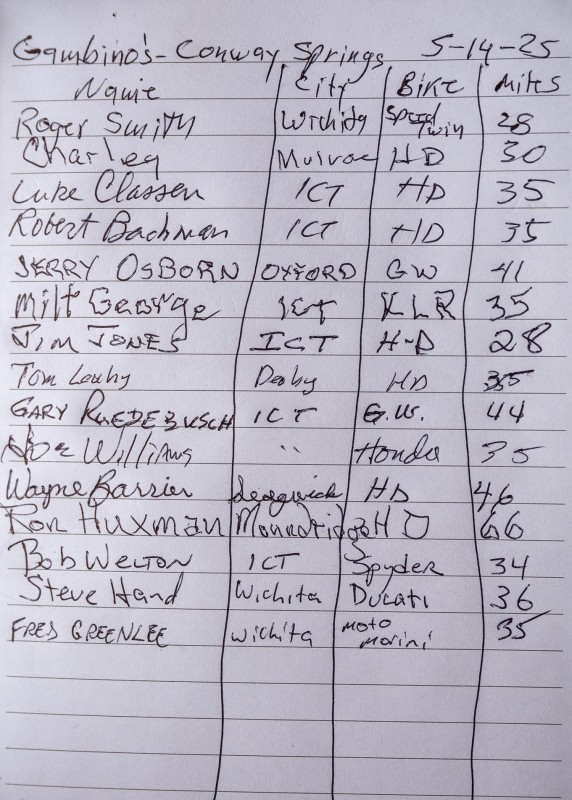 Gambino's - Conway Springs 5-14-25
Name City Bike Miles
Roger Smith Wichita Speed Twin 28
Charley Mulvane HD 30
Luke Classen ICT HD 35
Robert Bachman ICT HD 35
JERRY OSBORN OXFORD GW 41
Milt George ICT KLR 35
JIM JONES ICT H-D 28
Tom Leahy Derby HD 35
GARY RUEDEBUSCH ICT G.W. 44
Williams " Honda 35
Wayne Barrier Sedgwick HD 46
Ron Huxman Moundridge HD 66
Bob WELTON ICT Spyder 34
Steve Hand Wichita Ducati 36
FRED GREENLEE wichita moto morini 35